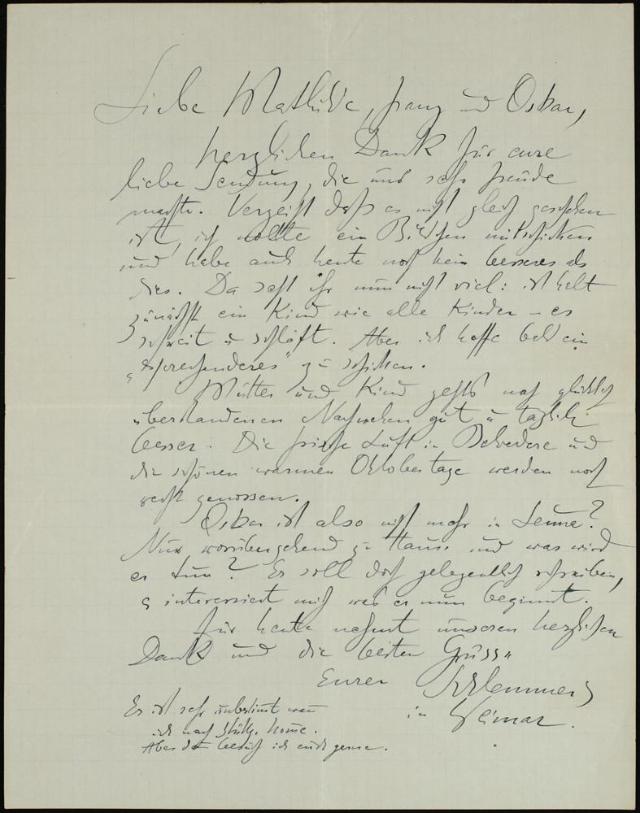 Liebe Mathilde, Franz und Oskar,
herzlichen Dank für eure
liebe Sendung, die uns sehr Freude
machte. Verzeiht daß es nicht gleich geschehen
ist, ich wollte ein Bildchen mitschicken
und habe auch heute noch kein besseres als
dies. Da seht ihr nun nicht viel: ist halt
zunächst ein Kind wie alle Kinder – es
schreit u schläft. Aber ich hoffe bald ein
"sprechenderes" zu schicken.
Mutter und Kind geht's nach glücklich
überstandenen Nachwehen gut u täglich
besser. Die frische Luft in Belvedere und
die schönen warmen Oktobertage werden noch
recht genossen.
Oskar ist also nicht mehr in Senne?
Nur vorübergehend zu Hause und was wird
er tun? Er soll doch gelegentlich schreiben,
es interessiert mich was er nun beginnt.
Für heute nehmt unseren herzlichen
Dank und die besten Grüsse
Eurer Schlemmers
in Weimar.
Es ist sehr unbestimmt wann
ich nach Stuttg. komme.
Aber dann besuch ich euch gerne.